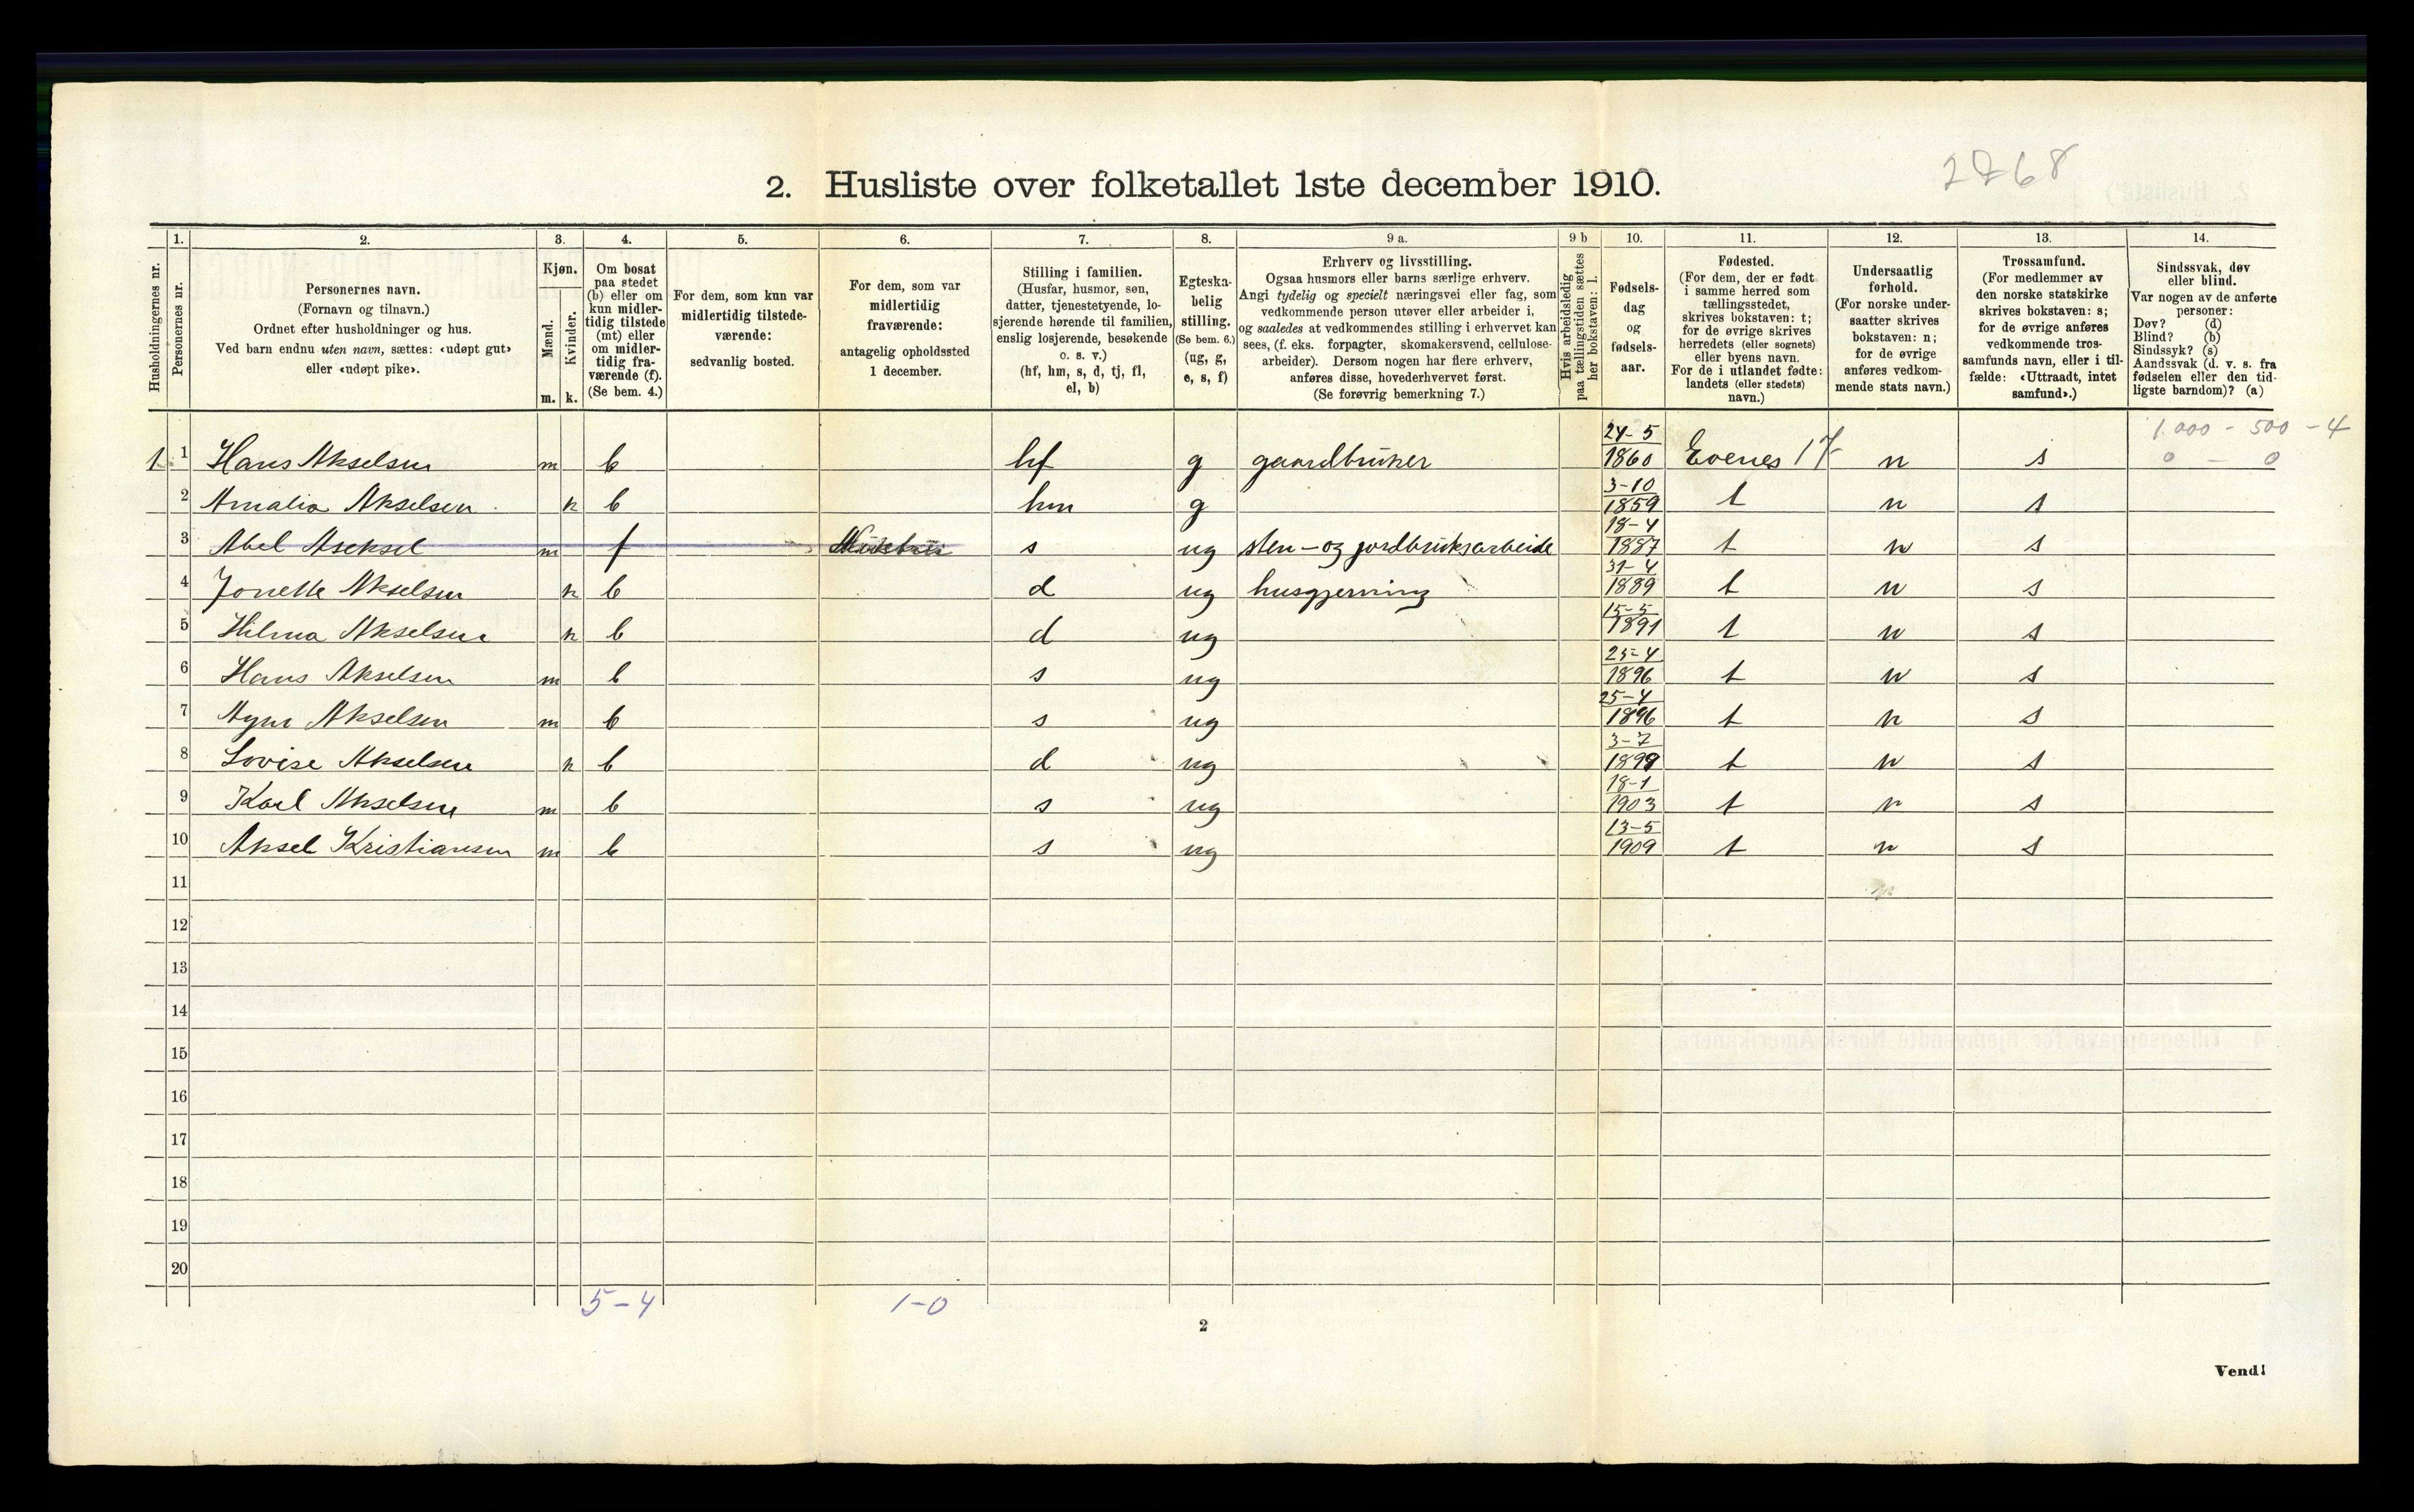 2768
2. Husliste over folketallet 1ste december 1910.
Husholdningernes nr.
1. Personernes nr.
2. Personernes navn. (Fornavn og tilnavn.) Ordnet efter husholdninger og hus. Ved barn endnu uten navn, sættes: «udøpt gut» eller «udøpt pike».
3. Kjøn. Mænd. Kvinder. m. k.
4. Om bosat paa stedet (b) eller om kun midlertidig tilstede (mt) eller om midlertidig fraværende (f). (Se bem. 4.)
5. For dem, som kun var midlertidig tilstedeværende: sedvanlig bosted.
6. For dem, som var midlertidig fraværende: antagelig opholdssted 1 december.
7. Stilling i familien. (Husfar, husmor, søn, datter, tjenestetyende, losjerende hørende til familien, enslig losjerende, besøkende o. s. v.) (hf, hm, s, d, tj, fl, el, b)
8. Egteskabelig stilling. (Se bem. 6.) (ug, g, e, s, f)
9 a. Erhverv og livsstilling. Ogsaa husmors eller barns særlige erhverv. Angi tydelig og specielt næringsvei eller fag, som vedkommende person utøver eller arbeider i, og saaledes at vedkommendes stilling i erhvervet kan sees, (f. eks. forpagter, skomakersvend, cellulosearbeider). Dersom nogen har flere erhverv, anføres disse, hovederhvervet først. (Se forøvrig bemerkning 7.)
9 b Hvis arbeidsledig paa tællingstiden sættes her bokstaven: l.
10. Fødselsdag og fødselsaar.
11. Fødested. (For dem, der er født i samme herred som tællingsstedet, skrives bokstaven: t; for de øvrige skrives herredets (eller sognets) eller byens navn. For de i utlandet fødte: landets (eller stedets) navn.)
12. Undersaatlig forhold. (For norske undersaatter skrives bokstaven: n; for de øvrige anføres vedkommende stats navn.)
13. Trossamfund. (For medlemmer av den norske statskirke skrives bokstaven: s; for de øvrige anføres vedkommende trossamfunds navn, eller i tilfælde: «Uttraadt, intet samfund».)
14. Sindssvak, døv eller blind. Var nogen av de anførte personer: Døv? (d) Blind? (b) Sindssyk? (s) Aandssvak (d. v. s. fra fødselen eller den tidligste barndom)? (a)
1 1 Hans Akselsen m b hf g gaardbruker 24-5 1860 Evenes 17 n s 1.000 - 500 - 4
0 - 0
2 Amalia Akselsen k b hm g 3-10 1859 t n s
3 Abel Aseksel m f s ug sten-og jordbruksarbeide 18-4 1887 t n s
4 Jonette Akselsen k b d ug husgjerning 31-4 1889 t n s
5 Hilma Akselsen k b d ug 15-5 1891 t n s
6 Hans Akselsen m b s ug 25-4 1896 t n s
7 Akselsen m b s ug 25-4 1896 t n s
8 Lovise Akselsen k b d ug 3-7 1899 t n s
9 Karl Akselsen m b s ug 18-1 1903 t n s
10 Aksel Kristiansen m b s ug 13-5 1909 t n s
11
12
13
14
15
16
17
18
19
20
5-4 1-0
2
Vend!